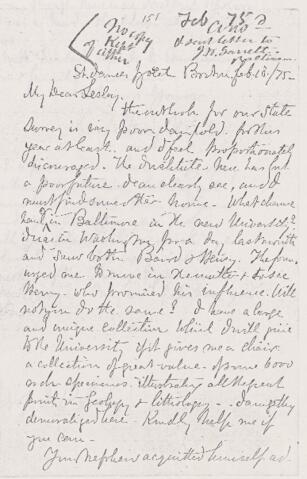 151
Feb 75
No copy
kept
of either
Also
I sent letter to
J. W. Garrett
St. James Hotel Boston Feb. 18./75-
My Dear Lesley,
The outlook for our State
Survey is very poor day fold. for this
year at least. and I feel proportionately
discouraged. The Institute here has but
a poor future. I can clearly see, and I
must find some other home. What chance
have I in Baltimore in the new University?
I was in Washington for a day, last month
and saw both Baird & Henry. The former
urged me to move in the matter & to see
Henry. who promised his influence. Will
not you do the same? I have a large
and unique collection which I will give
to the University, if it gives me a chair.
a collection of great value. of some 6000
rock specimens. illustrating all the great
points in Geology & Lithology - . I am pretty
demoralized here - Kindly help me if
you can -
Your Nephew acquitted himself ad-